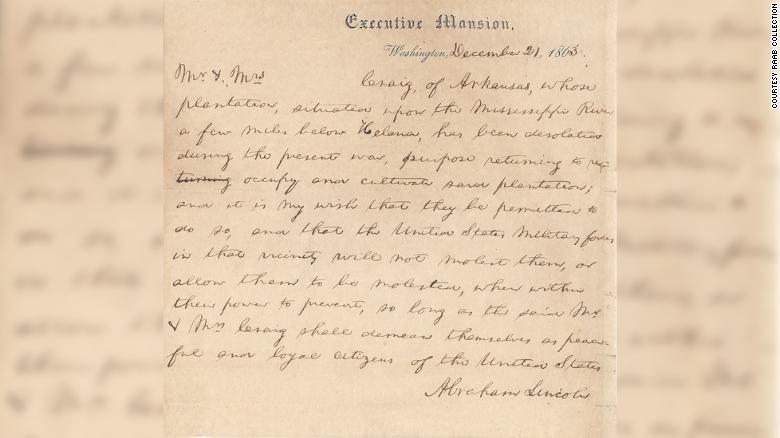 Executive Mansion,
Washington, December 21, 1863.
Mr. & Mrs Craig, of Arkansas, whose
plantation, situated upon the Mississippi River
a few miles below Helena, has been desolated
during the present war, purpose returning to re-
turning occupy and cultivate said plantation;
and it is my wish that they be permitted to
do so, and that the United States Military forces
in that vicinity will not molest them, or
allow them to be molested, when within
their power to prevent, so long as the said Mr.
& Mrs Craig shall demean themselves as peace-
ful and loyal citizens of the United States
Abraham Lincoln
COURTESY RAAB COLLECTION